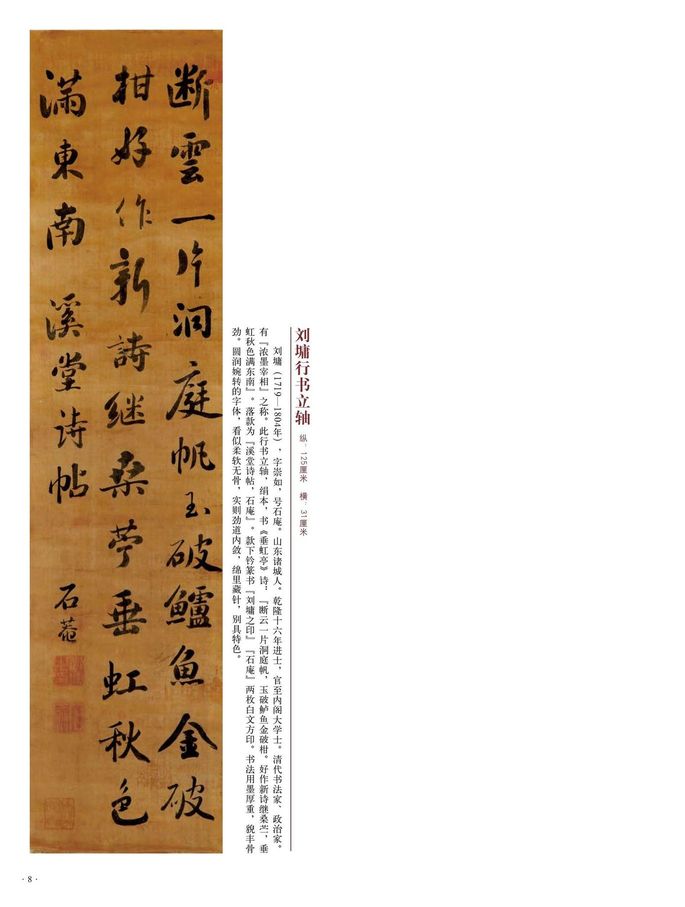 刘墉行书立轴 纵：125厘米 横：31厘米
刘墉（1719—1804年），字崇如，号石庵。山东诸城人。乾隆十六年进士，官至内阁大学士。清代书法家、政治家。
有『浓墨宰相』之称。此行书立轴，绢本，书《垂虹亭》诗：『断云一片洞庭帆，玉破鲈鱼金破柑。好作新诗继桑苎，垂
虹秋色满东南』。落款为『溪堂诗帖，石庵』。款下钤篆书『刘墉之印』『石庵』两枚白文方印。书法用墨厚重，貌丰骨
劲。圆润婉转的字体，看似柔软无骨，实则劲道内敛，绵里藏针，别具特色。
断雲一片洞庭帆玉破鱸魚金破
柑好作新詩继桑苧垂虹秋色
满東南 溪堂诗帖 石菴
·8·